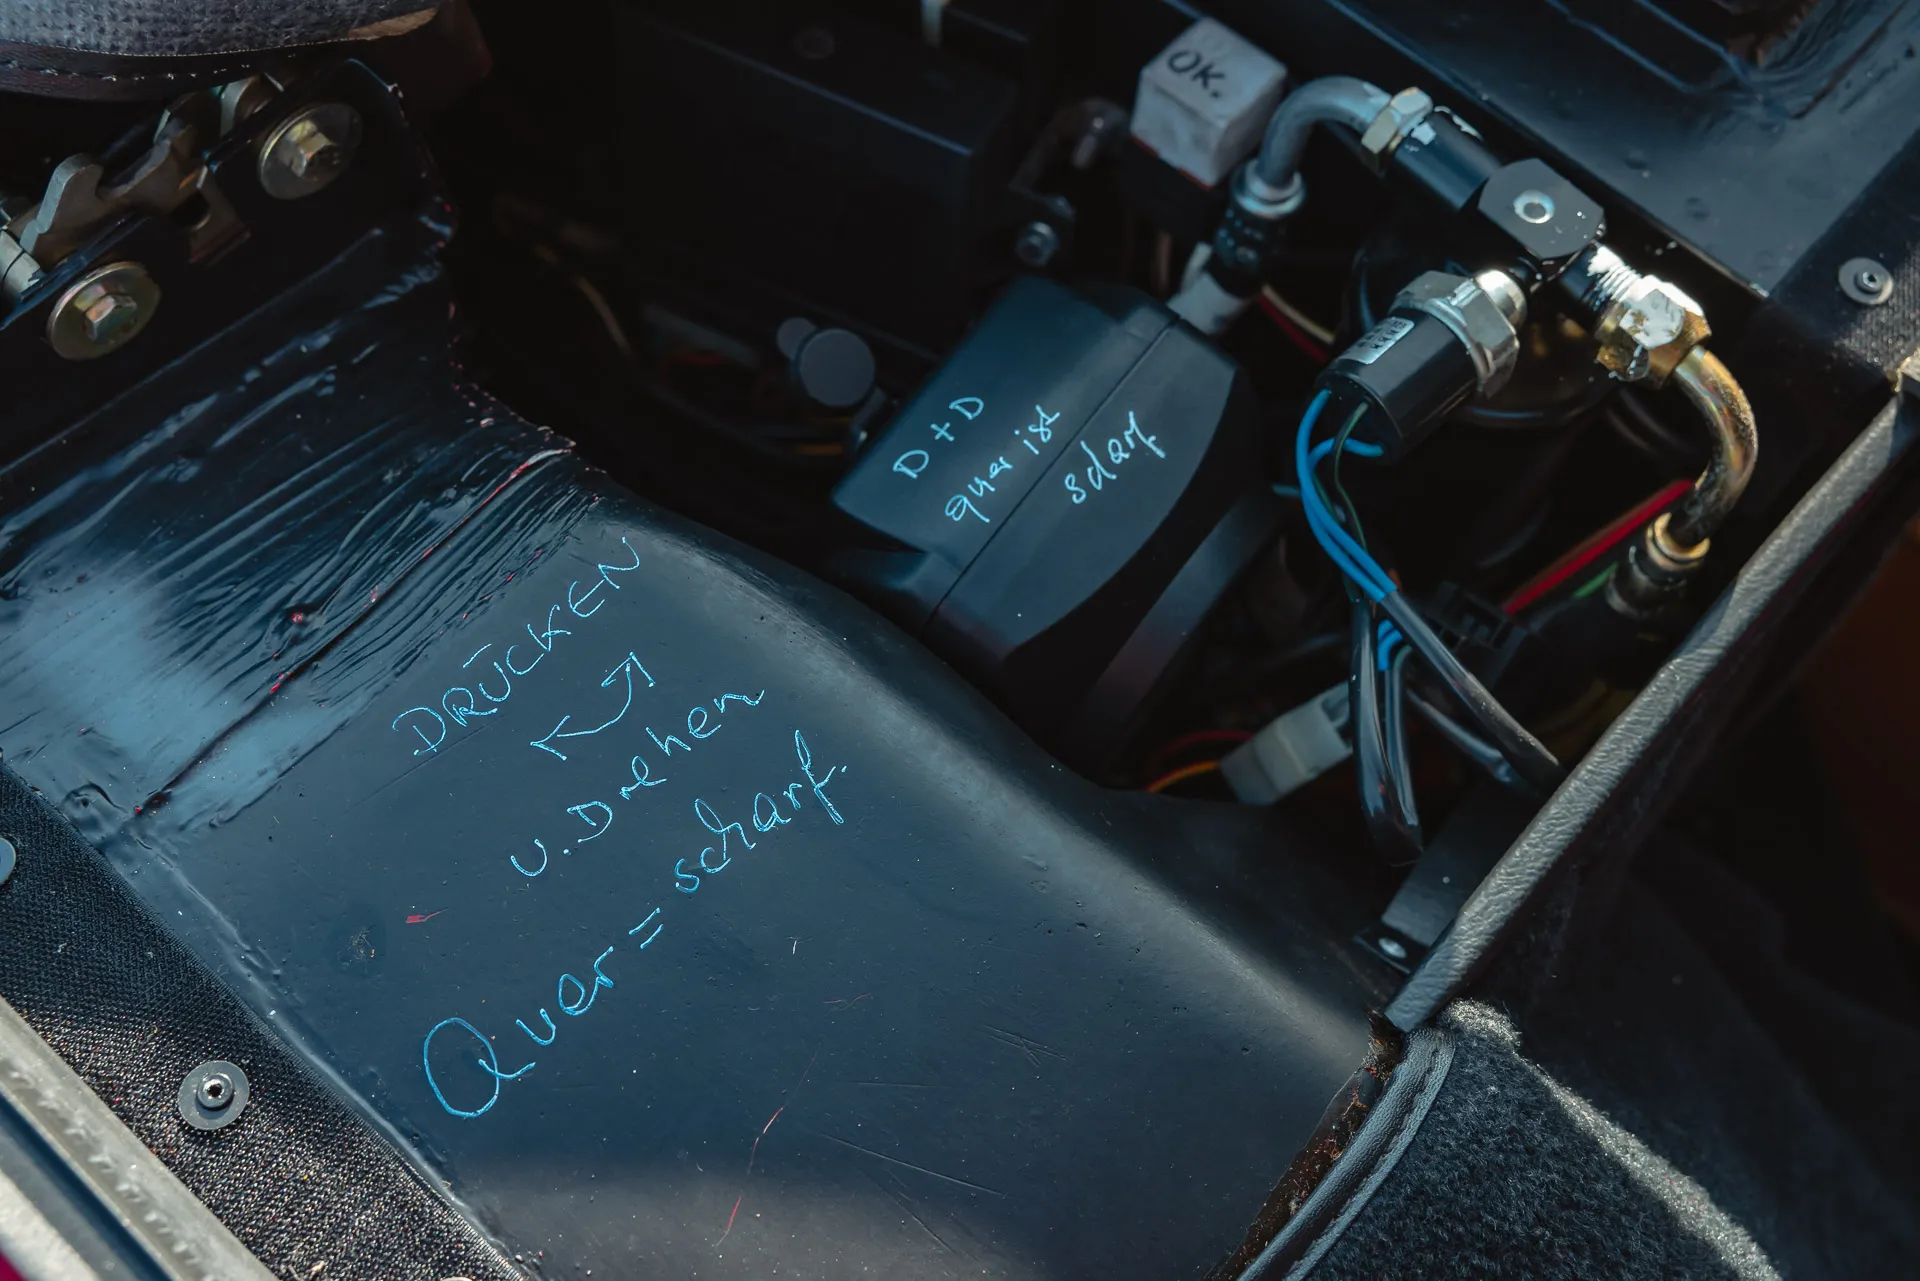 OK.
D + D
quer ist
scharf
DRÜCKEN
u. Drehen
Quer = scharf.